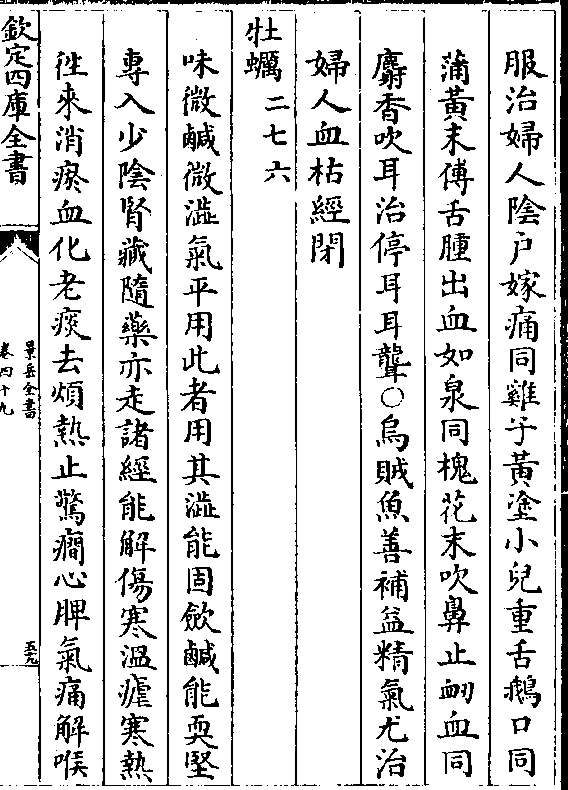 服治婦人陰户嫁痛同雞子黃塗小兒重舌鵝口同
蒲黃末傅舌腫出血如泉同槐花末吹鼻止衂血同
麝香吹耳治停耳耳聾○烏賊魚善補益精氣尤治
婦人血枯經閉
牡蠣二七六
味微鹹微澁氣平用此者用其澁能固歛鹹能耎堅
專入少陰腎藏隨藥亦走諸經能解傷寒溫瘧寒熱
徃來消瘀血化老痰去煩熱止驚癎心脾氣痛解喉
欽定四庫全書
景岳全書
卷四十九